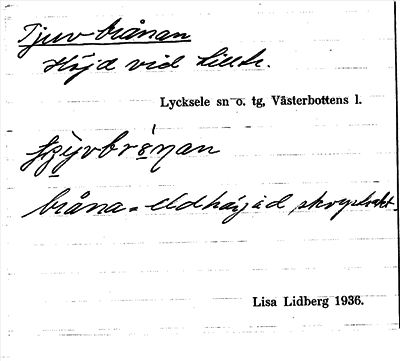 Tjuvbrånan
Höjd vid Lilltr.
Lycksele sn o. tg, Västerbottens l.
bråna = eldhärjad skogstrakt.
Lisa Lidberg 1936.